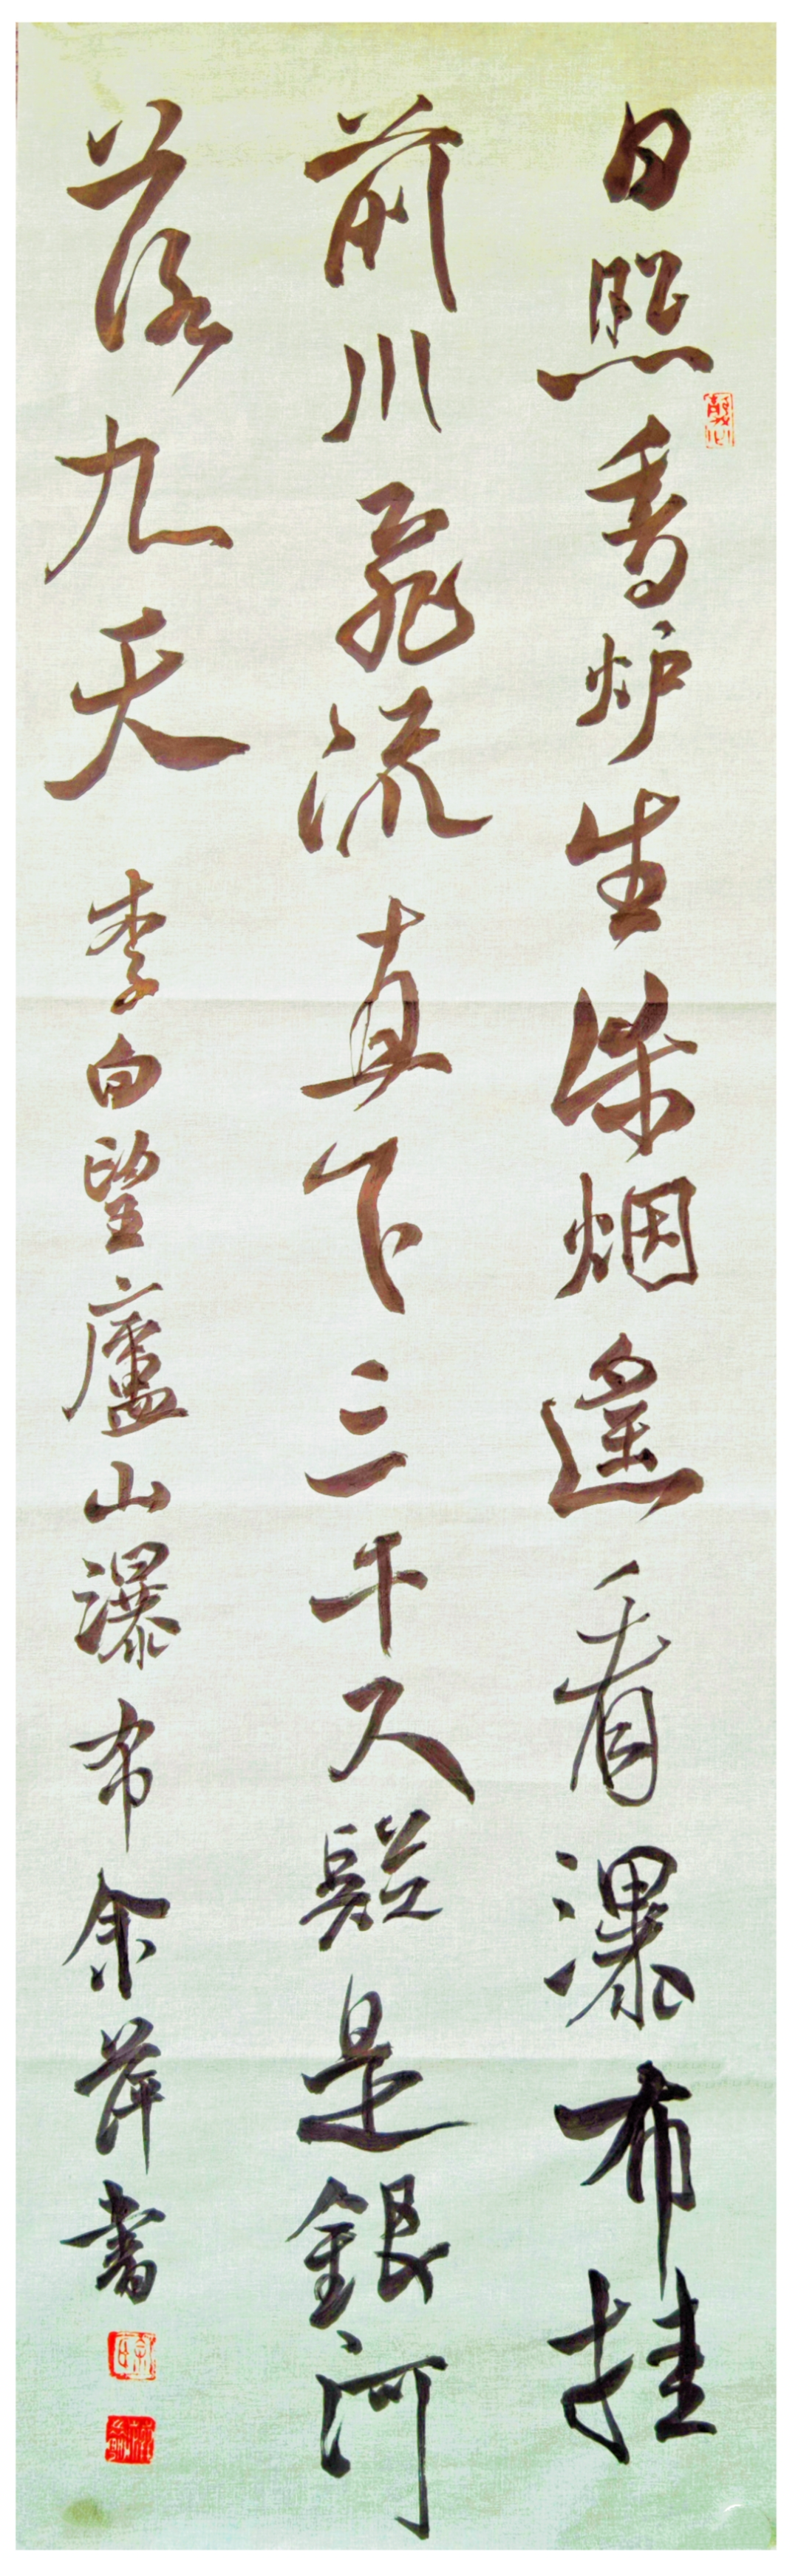 日照香炉生紫烟遥看瀑布挂
前川飛流直下三千尺疑是銀河
落九天 李白望廬山瀑布余萍書